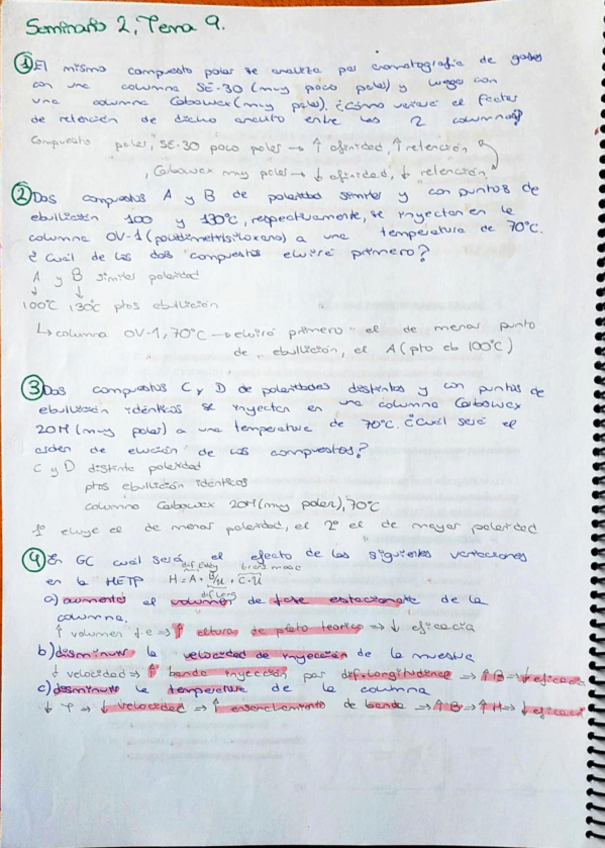 Seminario 2, Tema 9.
① El mismo compuesto polar se analiza por cromatografía de gases
con una columna SE-30 (muy poco polar) y luego con
una columna Cabowax (muy polar). ¿Cómo variará el factor
de retención de dicho analito entre las 2 columnas?
Compuesto polar, SE-30 poco polar → ↑ afinidad, ↑ retención
, Cabowax muy polar → ↓ afinidad, ↓ retención
② Dos compuestos A y B de polaridad similar y con puntos de
ebullición 100 y 130°C, respectivamente, se inyectan en la
columna OV-1 (polidimetilsiloxano) a una temperatura de 70°C.
¿Cuál de los dos compuestos eluirá primero?
A y B similar polaridad
↓ ↓
100°C 130°C ptos ebullición
↳ columna OV-1, 70°C → eluirá primero el de menor punto
de ebullición, el A (pto eb 100°C)
③ Dos compuestos C y D de polaridades distintas y con puntos de
ebullición idénticos se inyectan en una columna Carbowax
20M (muy polar) a una temperatura de 70°C. ¿Cuál será el
orden de elución de los compuestos?
C y D distinta polaridad
ptos ebullición idénticos
columna Carbowax 20M (muy polar), 70°C
1º eluye el de menor polaridad, el 2º el de mayor polaridad
④ En GC cuál será el efecto de las siguientes variaciones
dif. Eddy trans masc
en la HETP H = A + B/u + C·u
dif Long
a) aumentar el volumen de fase estacionaria de la
columna.
↑ volumen f.e → ↑ altura de plato teórico → ↓ eficacia
b) disminuir la velocidad de inyección de la muestra
↓ velocidad → ↑ banda inyección por dif. longitudinal → ↑ B → ↓ eficacia
c) disminuir la temperatura de la columna
↓ T → ↓ velocidad → ↑ ensanchamiento de banda → ↑ B → ↑ H → ↓ eficacia